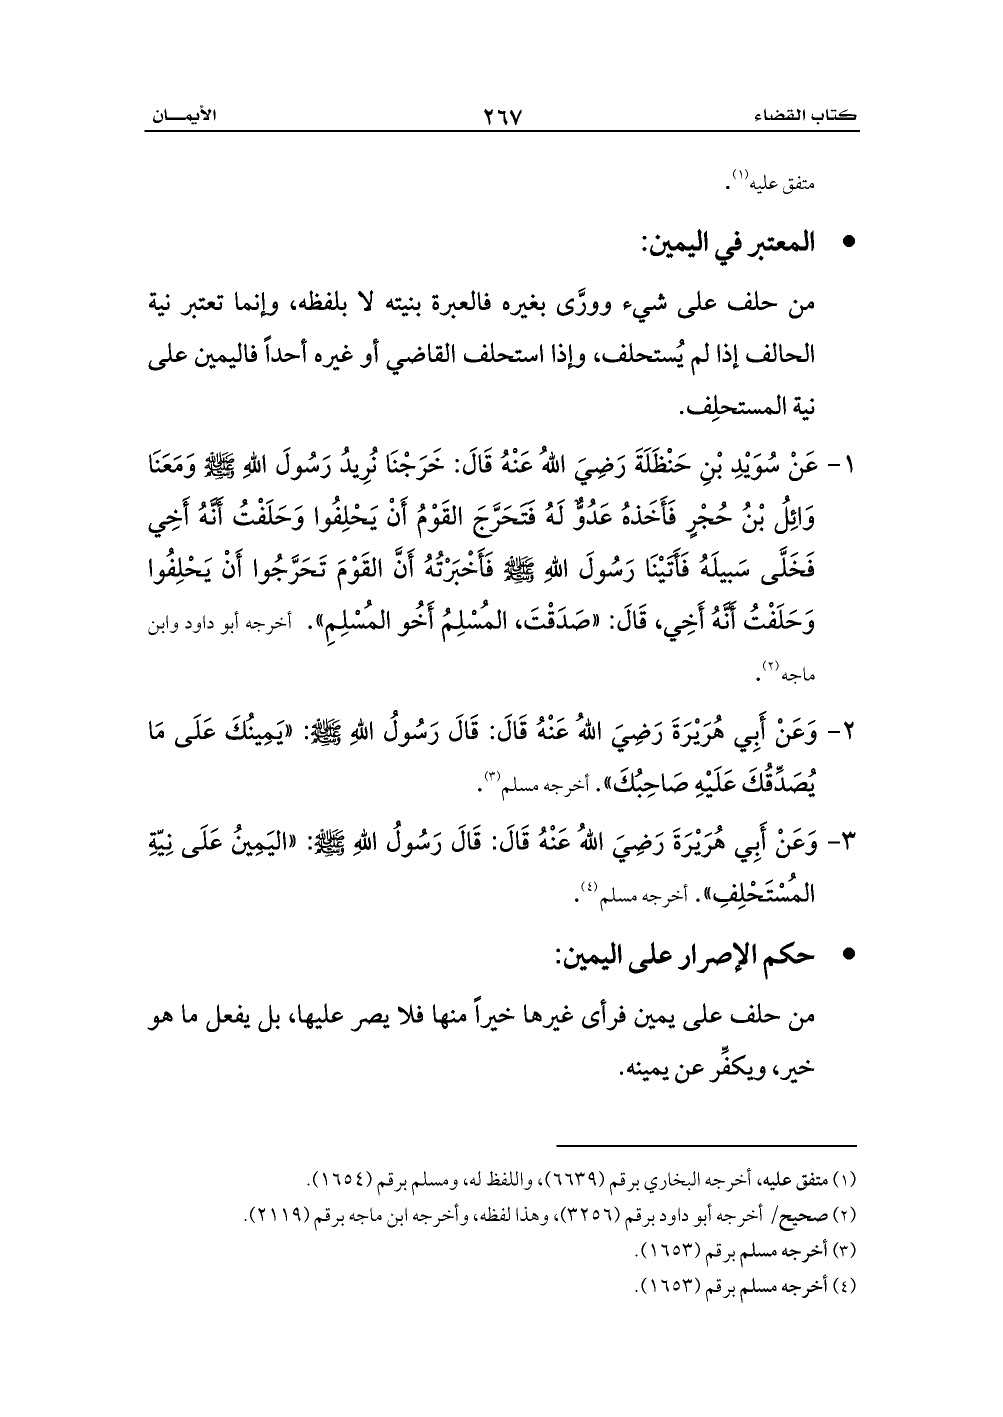 كتاب القضاء ٢٦٧ الأيمـــان
متفق عليه(١).
• المعتبر في اليمين:
من حلف على شيء وورَّى بغيره فالعبرة بنيته لا بلفظه، وإنما تعتبر نية
الحالف إذا لم يُستحلف، وإذا استحلف القاضي أو غيره أحداً فاليمين على
نية المستحلِف.
١- عَنْ سُوَيْدِ بْنِ حَنْظَلَةَ رَضِيَ اللهُ عَنْهُ قَالَ: خَرَجْنَا نُرِيدُ رَسُولَ اللهِ ﷺ وَمَعَنَا
وَائِلُ بْنُ حُجْرٍ فَأَخَذهُ عَدُوٌّ لَهُ فَتَحَرَّجَ القَوْمُ أَنْ يَحْلِفُوا وَحَلَفْتُ أَنَّهُ أَخِي
فَخَلَّى سَبِيلَهُ فَأَتَيْنَا رَسُولَ اللهِ ﷺ فَأَخْبَرْتُهُ أَنَّ القَوْمَ تَحَرَّجُوا أَنْ يَحْلِفُوا
وَحَلَفْتُ أَنَّهُ أَخِي، قَالَ: «صَدَقْتَ، المُسْلِمُ أَخُو المُسْلِمِ». أخرجه أبو داود وابن
ماجه(٢).
٢- وَعَنْ أَبِي هُرَيْرَةَ رَضِيَ اللهُ عَنْهُ قَالَ: قَالَ رَسُولُ اللهِ ﷺ: «يَمِينُكَ عَلَى مَا
يُصَدِّقُكَ عَلَيْهِ صَاحِبُكَ». أخرجه مسلم(٣).
٣- وَعَنْ أَبِي هُرَيْرَةَ رَضِيَ اللهُ عَنْهُ قَالَ: قَالَ رَسُولُ اللهِ ﷺ: «اليَمِينُ عَلَى نِيّةِ
المُسْتَحْلِفِ». أخرجه مسلم(٤).
• حكم الإصرار على اليمين:
من حلف على يمين فرأى غيرها خيراً منها فلا يصر عليها، بل يفعل ما هو
خير، ويكفِّر عن يمينه.
(١) متفق عليه، أخرجه البخاري برقم (٦٦٣٩)، واللفظ له، ومسلم برقم (١٦٥٤).
(٢) صحيح/ أخرجه أبو داود برقم (٣٢٥٦)، وهذا لفظه، وأخرجه ابن ماجه برقم (٢١١٩).
(٣) أخرجه مسلم برقم (١٦٥٣).
(٤) أخرجه مسلم برقم (١٦٥٣).